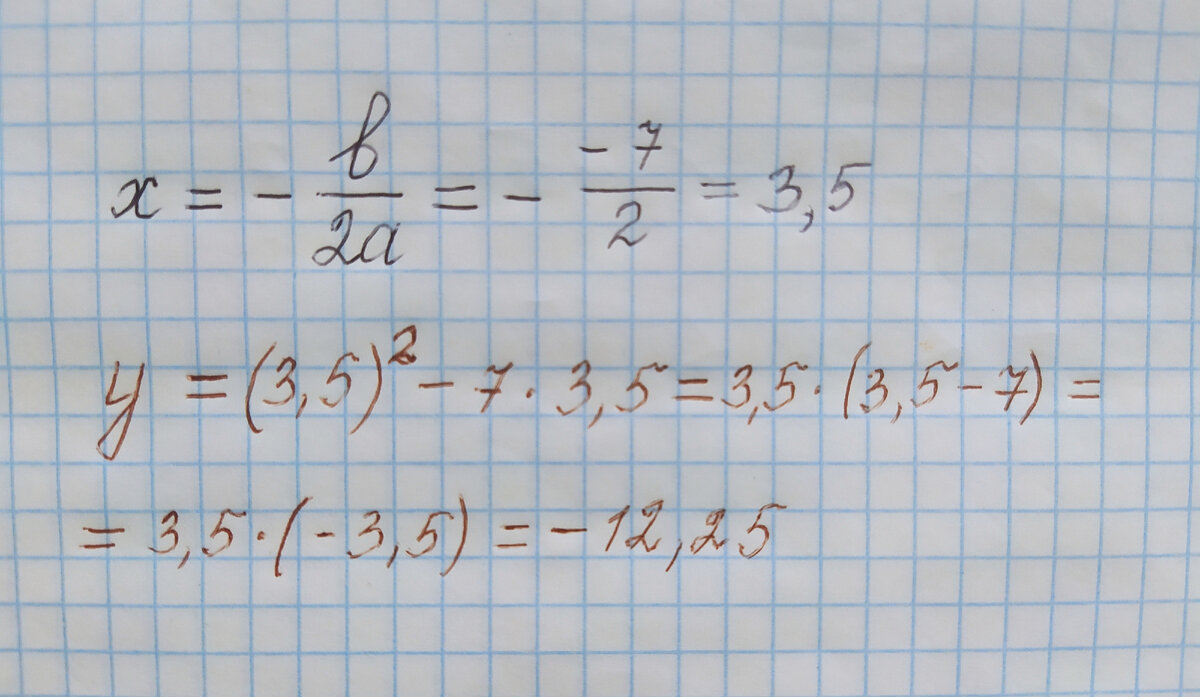 x = - b/2a = - -7/2 = 3,5
y = (3,5)² - 7 · 3,5 = 3,5 · (3,5 - 7) =
= 3,5 · (-3,5) = -12,25